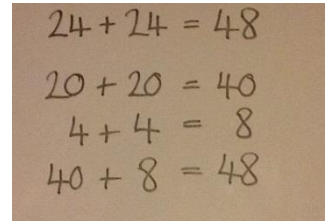 24 + 24 = 48
20 + 20 = 40
4 + 4 = 8
40 + 8 = 48